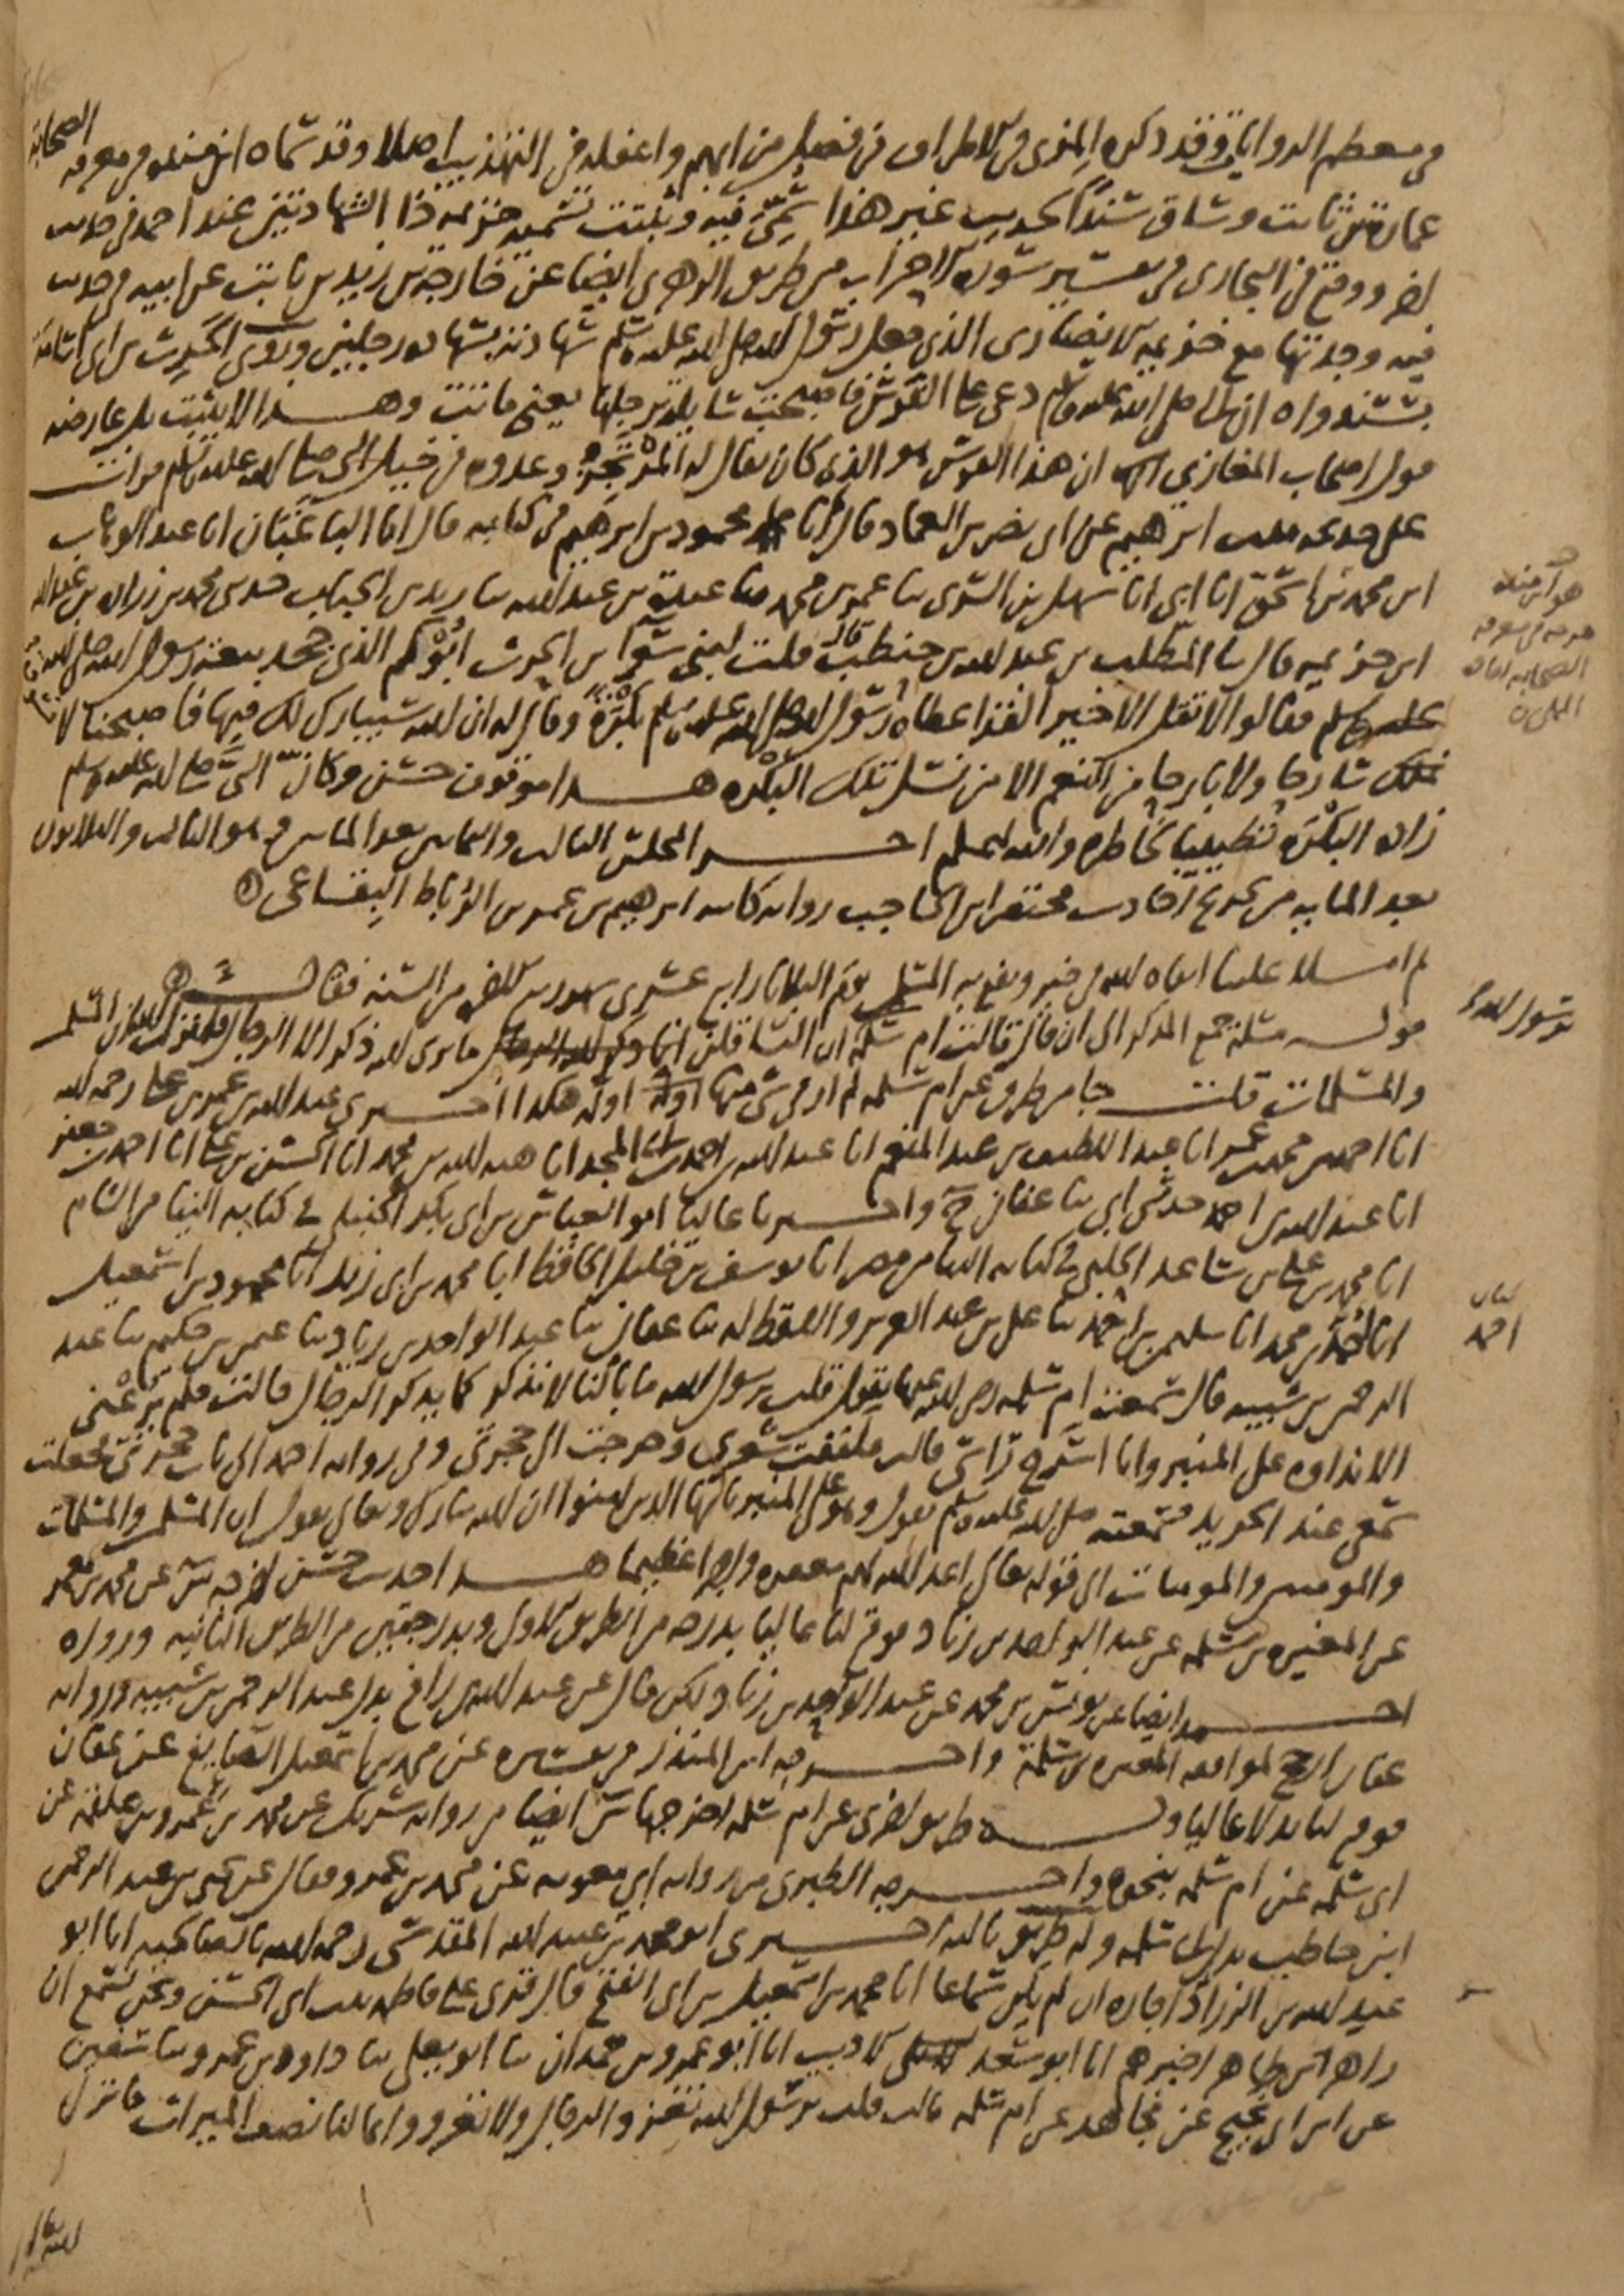 في معظم الروايات وقد ذكره المزي في الاطراف في فصل من ابهم واغفله في التهذيب اصلا وقد سماه ابن منده في معرفة الصحابة
عمارة بن ثابت وساق سندا لحديث غير هذا سمي فيه وثبتت تسمية خزيمة ذا الشهادتين عند احمد في حديث
اخر ووقع في البخاري في تفسير سورة الاحزاب من طريق الزهري ايضا عن خارجة بن زيد بن ثابت عن ابيه في حديث
فيه وجدتها مع خزيمة الانصاري الذي جعل رسول الله صلى الله عليه وسلم شهادته بشهادة رجلين وروى الحارث بن ابي اسامة
بسند واه ان النبي صلى الله عليه وسلم دعى على الفرس فاصبحت شايلة برجلها يعني ماتت وهذا لا يثبت بل يعارضه
قول اصحاب المغازي ان هذا الفرس هو الذي كان يقال له المرتجز وعدوه في خيل النبي صلى الله عليه وسلم قرات
على خديجة بنت ابرهيم عن ابي نصر بن العماد قال انا محمود بن ابرهيم في كتابه قال انا الباغبان انا عبد الوهاب
ابن محمد بن اسحق انا ابي انا سهل بن السري ثنا عمرو بن محمد ثنا عبدة بن عبد الله ثنا زيد بن الحباب حدثني محمد بن زرارة بن عبد الله
ابن خزيمة قال ثنا المطلب بن عبد الله بن حنطب قال قلت لبني سواء بن الحرث ابوكم الذي جحد بيعة رسول الله صلى الله
عليه وسلم فقالوا لا تقل الا خيرا فقد اعطاه رسول الله صلى الله عليه وسلم بكرة وقال له ان الله سيبارك لك فيها فما اصبحنا لا
نملك سارحا ولا بارحا من النعم الا من نسل تلك البكرة هذا موقوف حسن وكان النبي صلى الله عليه وسلم
زاده البكرة تطييبا لخاطره والله اعلم اخر المجلس الثالث والثمانين بعد المايتين وهو الثالث والثلاثون
بعد الماية من تخريج احاديث مختصر ابن الحاجب رواية كاتبه ابرهيم بن عمر بن الرباط البقاعي
ثم املا علينا ابقاه الله في خير ونفع به المسلمين يوم الثلاثا رابع عشري شهر ربيع الاخر من السنة فقال
قوله مسئلة جمع المذكر الى ان قال قالت ام سلمة ان النسا قلن ما نرى الله ذكر الا الرجال فانزل الله ان المسلمين
والمسلمات قلت جا من طرق عن ام سلمة لم ار في شي منها اوله هكذا اخبرني عبد الله بن عمر بن علي رحمه الله
انا احمد بن محمد بن عمر انا عبد اللطيف بن عبد المنعم انا عبد الله بن احمد بن ابي المجد انا هبة الله بن محمد انا الحسن بن علي انا احمد بن جعفر
انا عبد الله بن احمد حدثني ابي ثنا عفان ح واخبرنا عاليا ابو العباس بن ابي بكر الحنبلي في كتابه الينا من الشام
انا محمد بن علي بن ساعد الحلبي في كتابه الينا من مصر انا يوسف بن خليل الحافظ انا محمد بن ابي زيد انا محمود بن اسمعيل
انا احمد بن محمد انا سليمن بن احمد ثنا علي بن عبد العزيز واللفظ له ثنا عفان ثنا عبد الواحد بن زياد ثنا عثمن بن حكيم ثنا عبد
الرحمن بن شيبة قال سمعت ام سلمة رضي الله عنها تقول قلت يرسول الله ما بالنا لا نذكر كما يذكر الرجال قالت فلم يرعني
الا نداوه على المنبر وانا اسرح راسي قالت فلففت شعري وخرجت الى حجرتي وفي رواية احمد الى باب حجرتي فجعلت
سمعي عند الجريد فسمعته صلى الله عليه وسلم يقول وهو على المنبر يايها الذين امنوا ان الله تبارك وتعالى يقول ان المسلمين والمسلمات
والمومنين والمومنات الى قوله تعالى اعد الله لهم مغفرة واجرا عظيما هذا حديث حسن اخرجه س عن محمد بن معمر
عن المغيرة بن سلمة عن عبد الواحد بن زياد فوقع لنا عاليا بدرجة من الطريق الاول وبدرجتين من الطريق الثانية ورواه
احمد ايضا عن يونس بن محمد عن عبد الواحد بن زياد ولكن قال عن عبد الله بن رافع بدل عبد الرحمن بن شيبة ورواية
عفان ارجح لموافقة المغيرة بن سلمة واخرجه ابن المنذر في تفسيره عن محمد بن اسمعيل الصايغ عن عفان
فوقع لنا بدلا عاليا وله طريق اخرى عن ام سلمة اخرجها س ايضا من رواية شريك عن محمد بن عمرو بن علقمة عن
ابي سلمة عن ام سلمة بنحوه واخرجه الطبري من رواية ابي معوية عن محمد بن عمرو فقال عن يحيى بن عبد الرحمن
ابن حاطب بدل ابي سلمة وله طريق ثالثة اخبرني ابو محمد بن عبيد الله المقدسي رحمه الله بالصالحية انا ابو
عبد الله بن الزراد اجازة ان لم يكن سماعا انا محمد بن اسمعيل بن ابي الفتح قال قرئ على فاطمة بنت ابي الحسن ونحن نسمع ان
زاهر بن طاهر اخبرهم انا ابو سعد الاديب انا ابو عمرو بن حمدان ثنا ابو يعلى ثنا داود بن عمرو ثنا سفين
عن ابن ابي نجيح عن مجاهد عن ام سلمة قالت قلت يرسول الله تغزو الرجال ولا نغزو وانما لنا نصف الميراث فانزل
هو ابن منده
خرجه في معرفة
الصحابة
يرسول الله
احمد